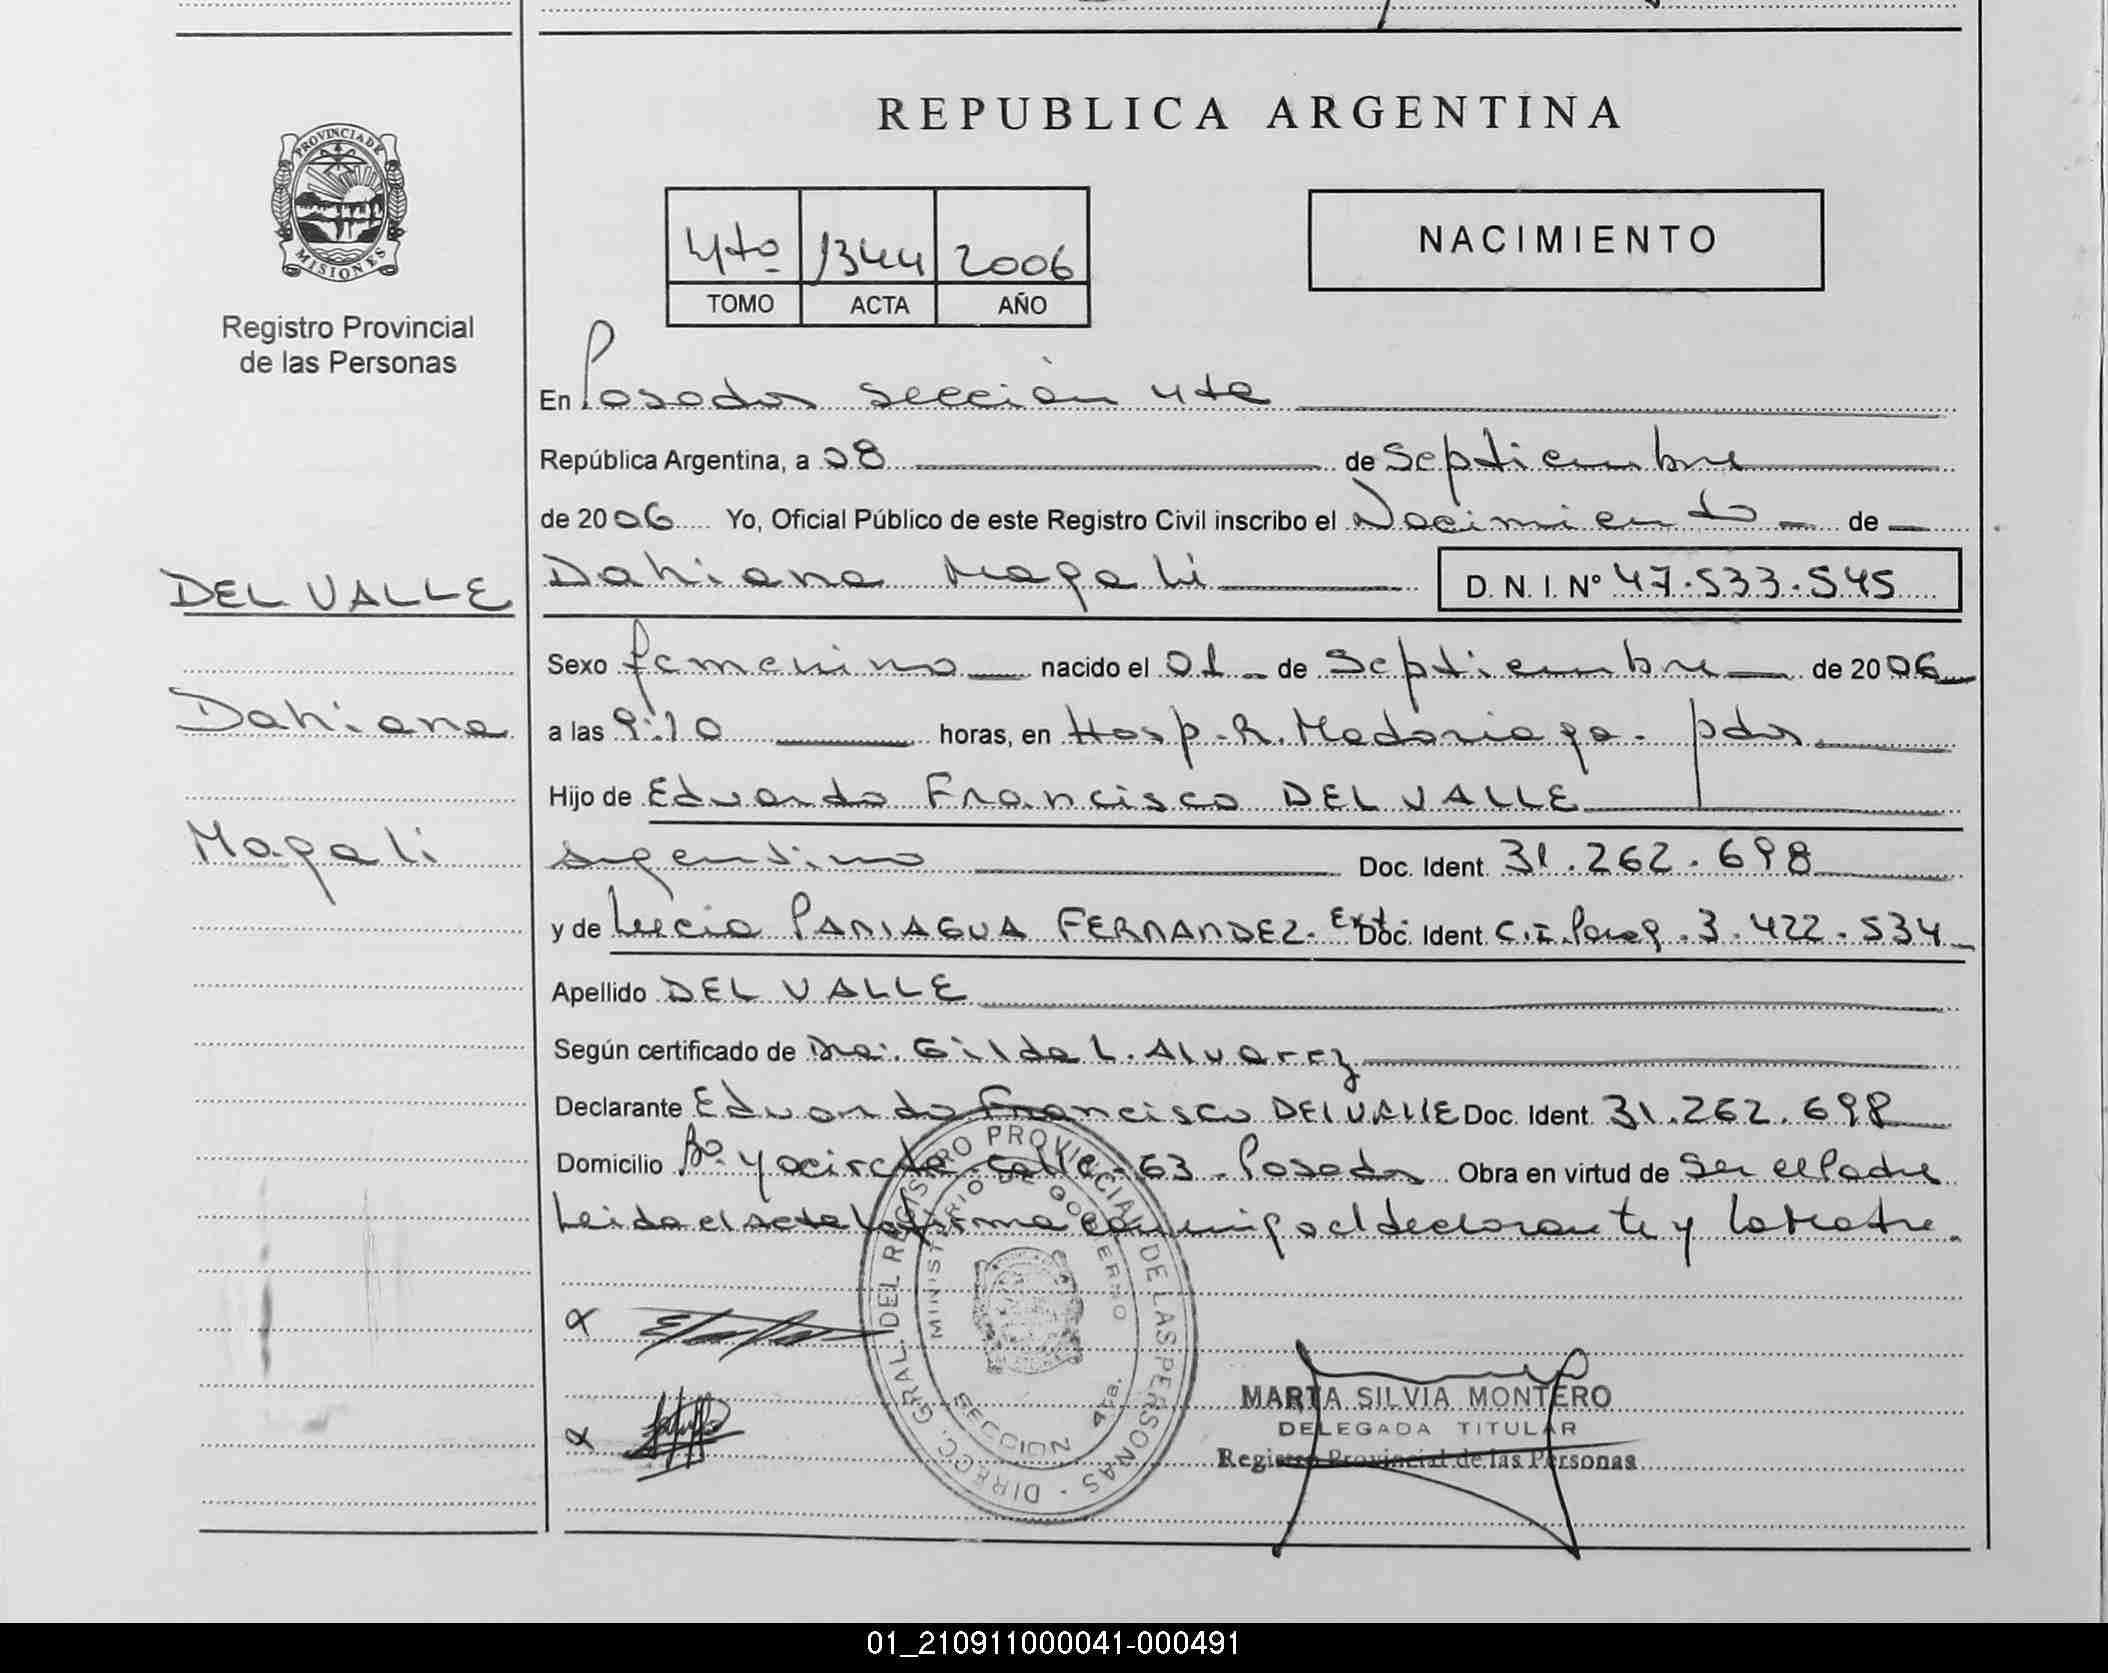 REPUBLICA ARGENTINA
PROVINCIA DE
MISIONES
Registro Provincial
de las Personas
4to 1344 2006
TOMO ACTA AÑO
NACIMIENTO
En Posadas sección 4ta
República Argentina, a 08 de Septiembre
de 2006 Yo, Oficial Público de este Registro Civil inscribo el Nacimiento de
Dahiana Magali D. N. I. N° 47.533.545
DEL VALLE
Dahiana
Magali
Sexo femenino nacido el 01 de Septiembre de 2006
a las 9:10 horas, en Hosp. R. Madariaga. pdas
Hijo de Eduardo Francisco DEL VALLE
argentino Doc. Ident. 31.262.698
y de Lucia PANIAGUA FERNANDEZ. Ext. Doc. Ident C.I. Parag. 3.422.534
Apellido DEL VALLE
Según certificado de Dra. Gilda L. Alvarez
Declarante Eduardo Francisco DEL VALLE Doc. Ident. 31.262.698
Domicilio Bo. Yacireta calle 63 - Posadas Obra en virtud de Ser el Padre
Leida el acta la firma conmigo el declarante y la Madre.
DIREC. GRAL. DEL REGISTRO PROVINCIAL DE LAS PERSONAS
MINISTERIO DE GOBIERNO
SECCION 4ta.
MARTA SILVIA MONTERO
DELEGADA TITULAR
Registro Provincial de las Personas
01_210911000041-000491